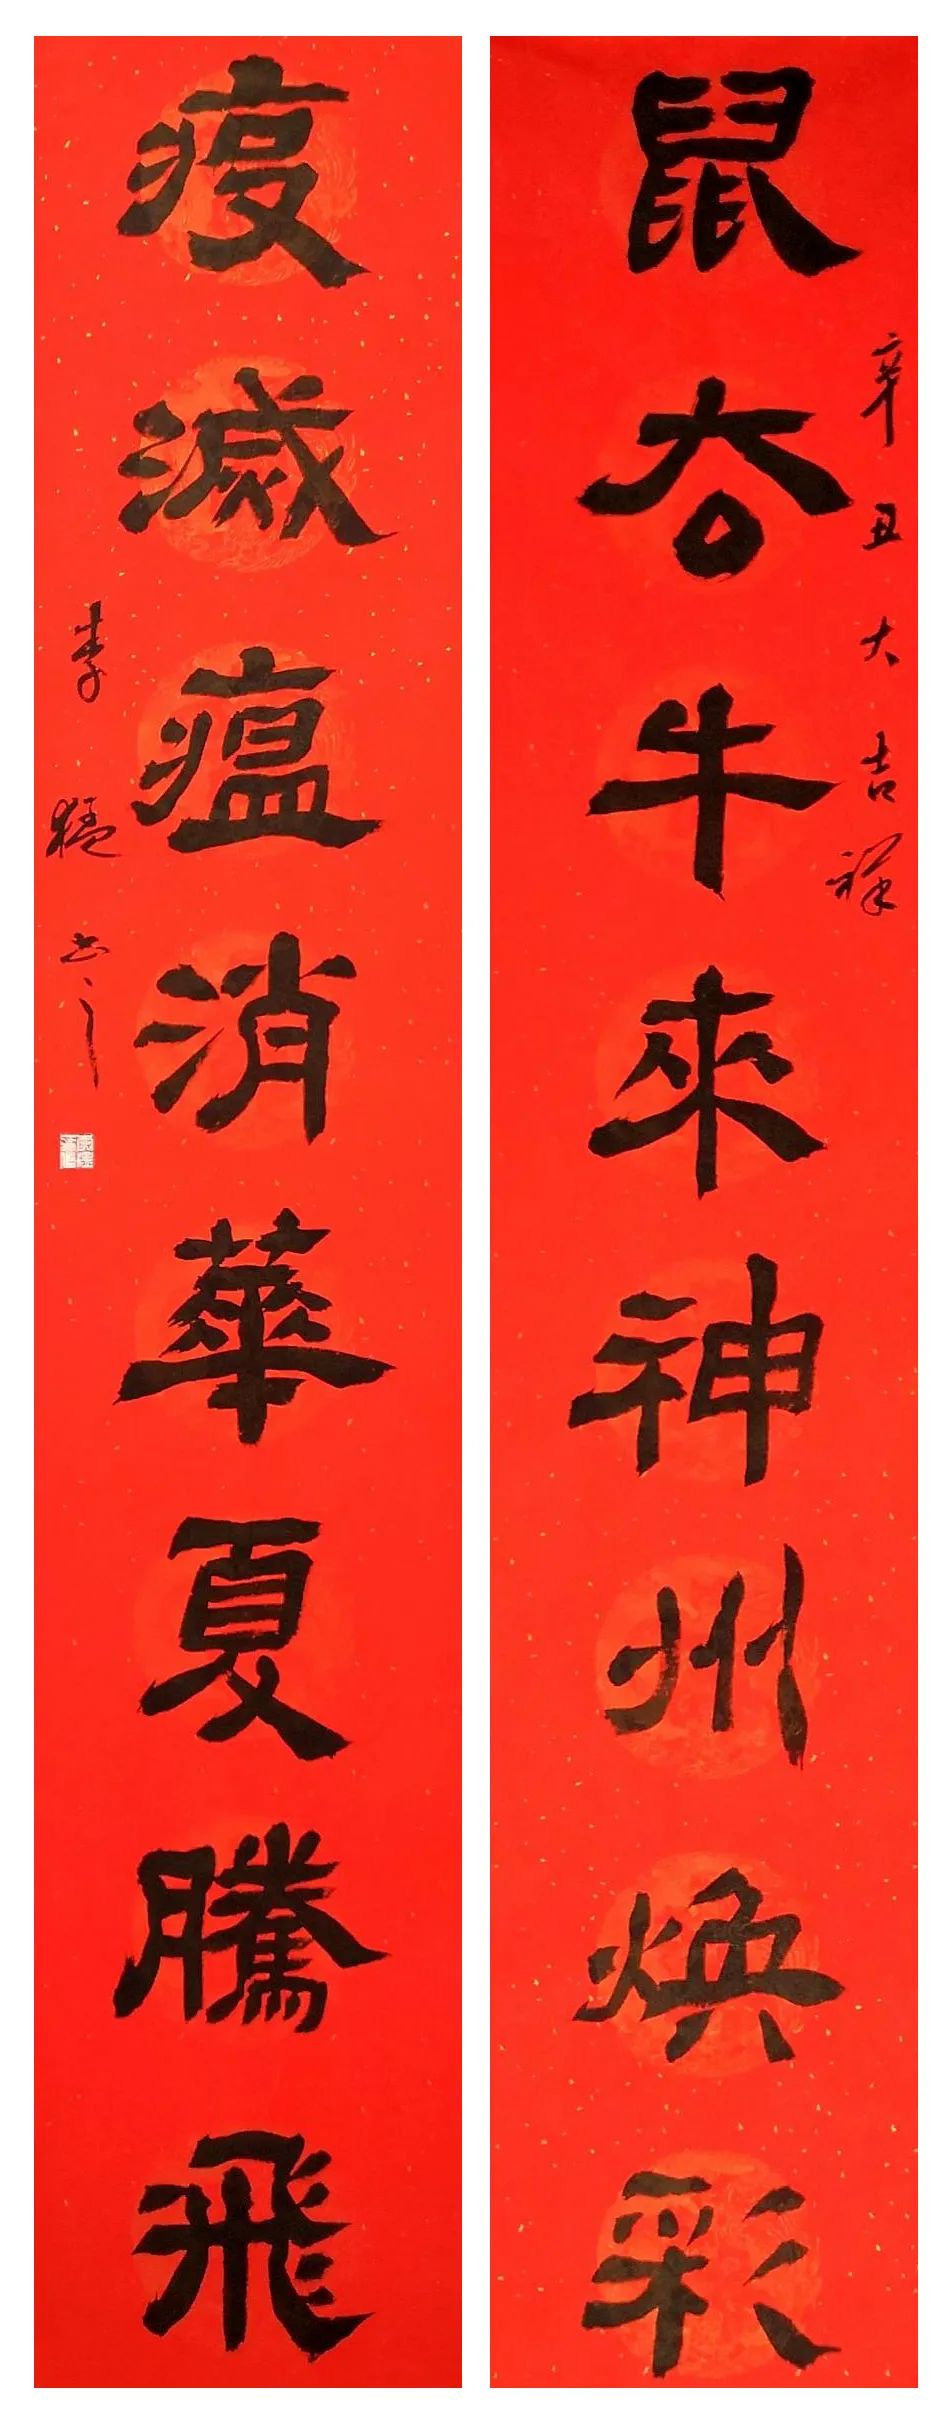 辛丑大吉祥
鼠去牛來神州煥彩
疫滅瘟消華夏騰飛
李猛书